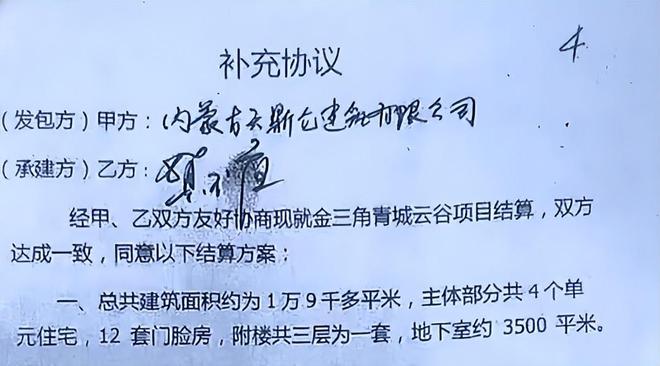 4
补充协议
(发包方)甲方：内蒙古天斯仑建筑有限公司
(承建方)乙方：
经甲、乙双方友好协商现就金三角青城云谷项目结算，双方
达成一致，同意以下结算方案：
一、总共建筑面积约为1万9千多平米，主体部分共4个单
元住宅，12 套门脸房，附楼共三层为一套，地下室约 3500 平米。